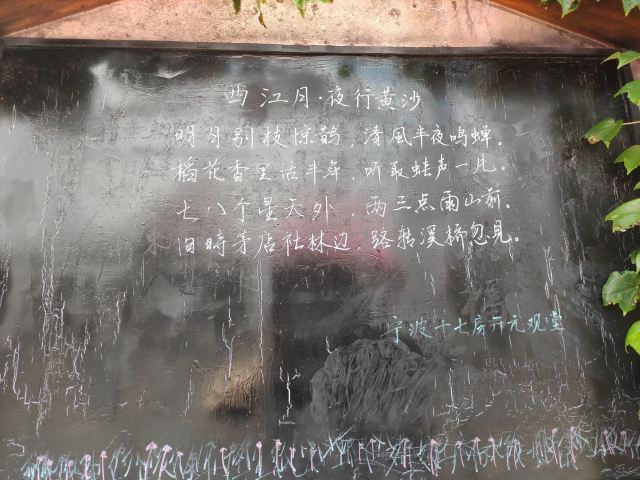 西江月·夜行黄沙
明月别枝惊鹊，清風半夜鸣蝉。
稻花香里话丰年，听取蛙声一片。
七八个星天外，两三点雨山前。
旧時茅店社林边，路转溪桥忽见。
宁波十七房开元观堂